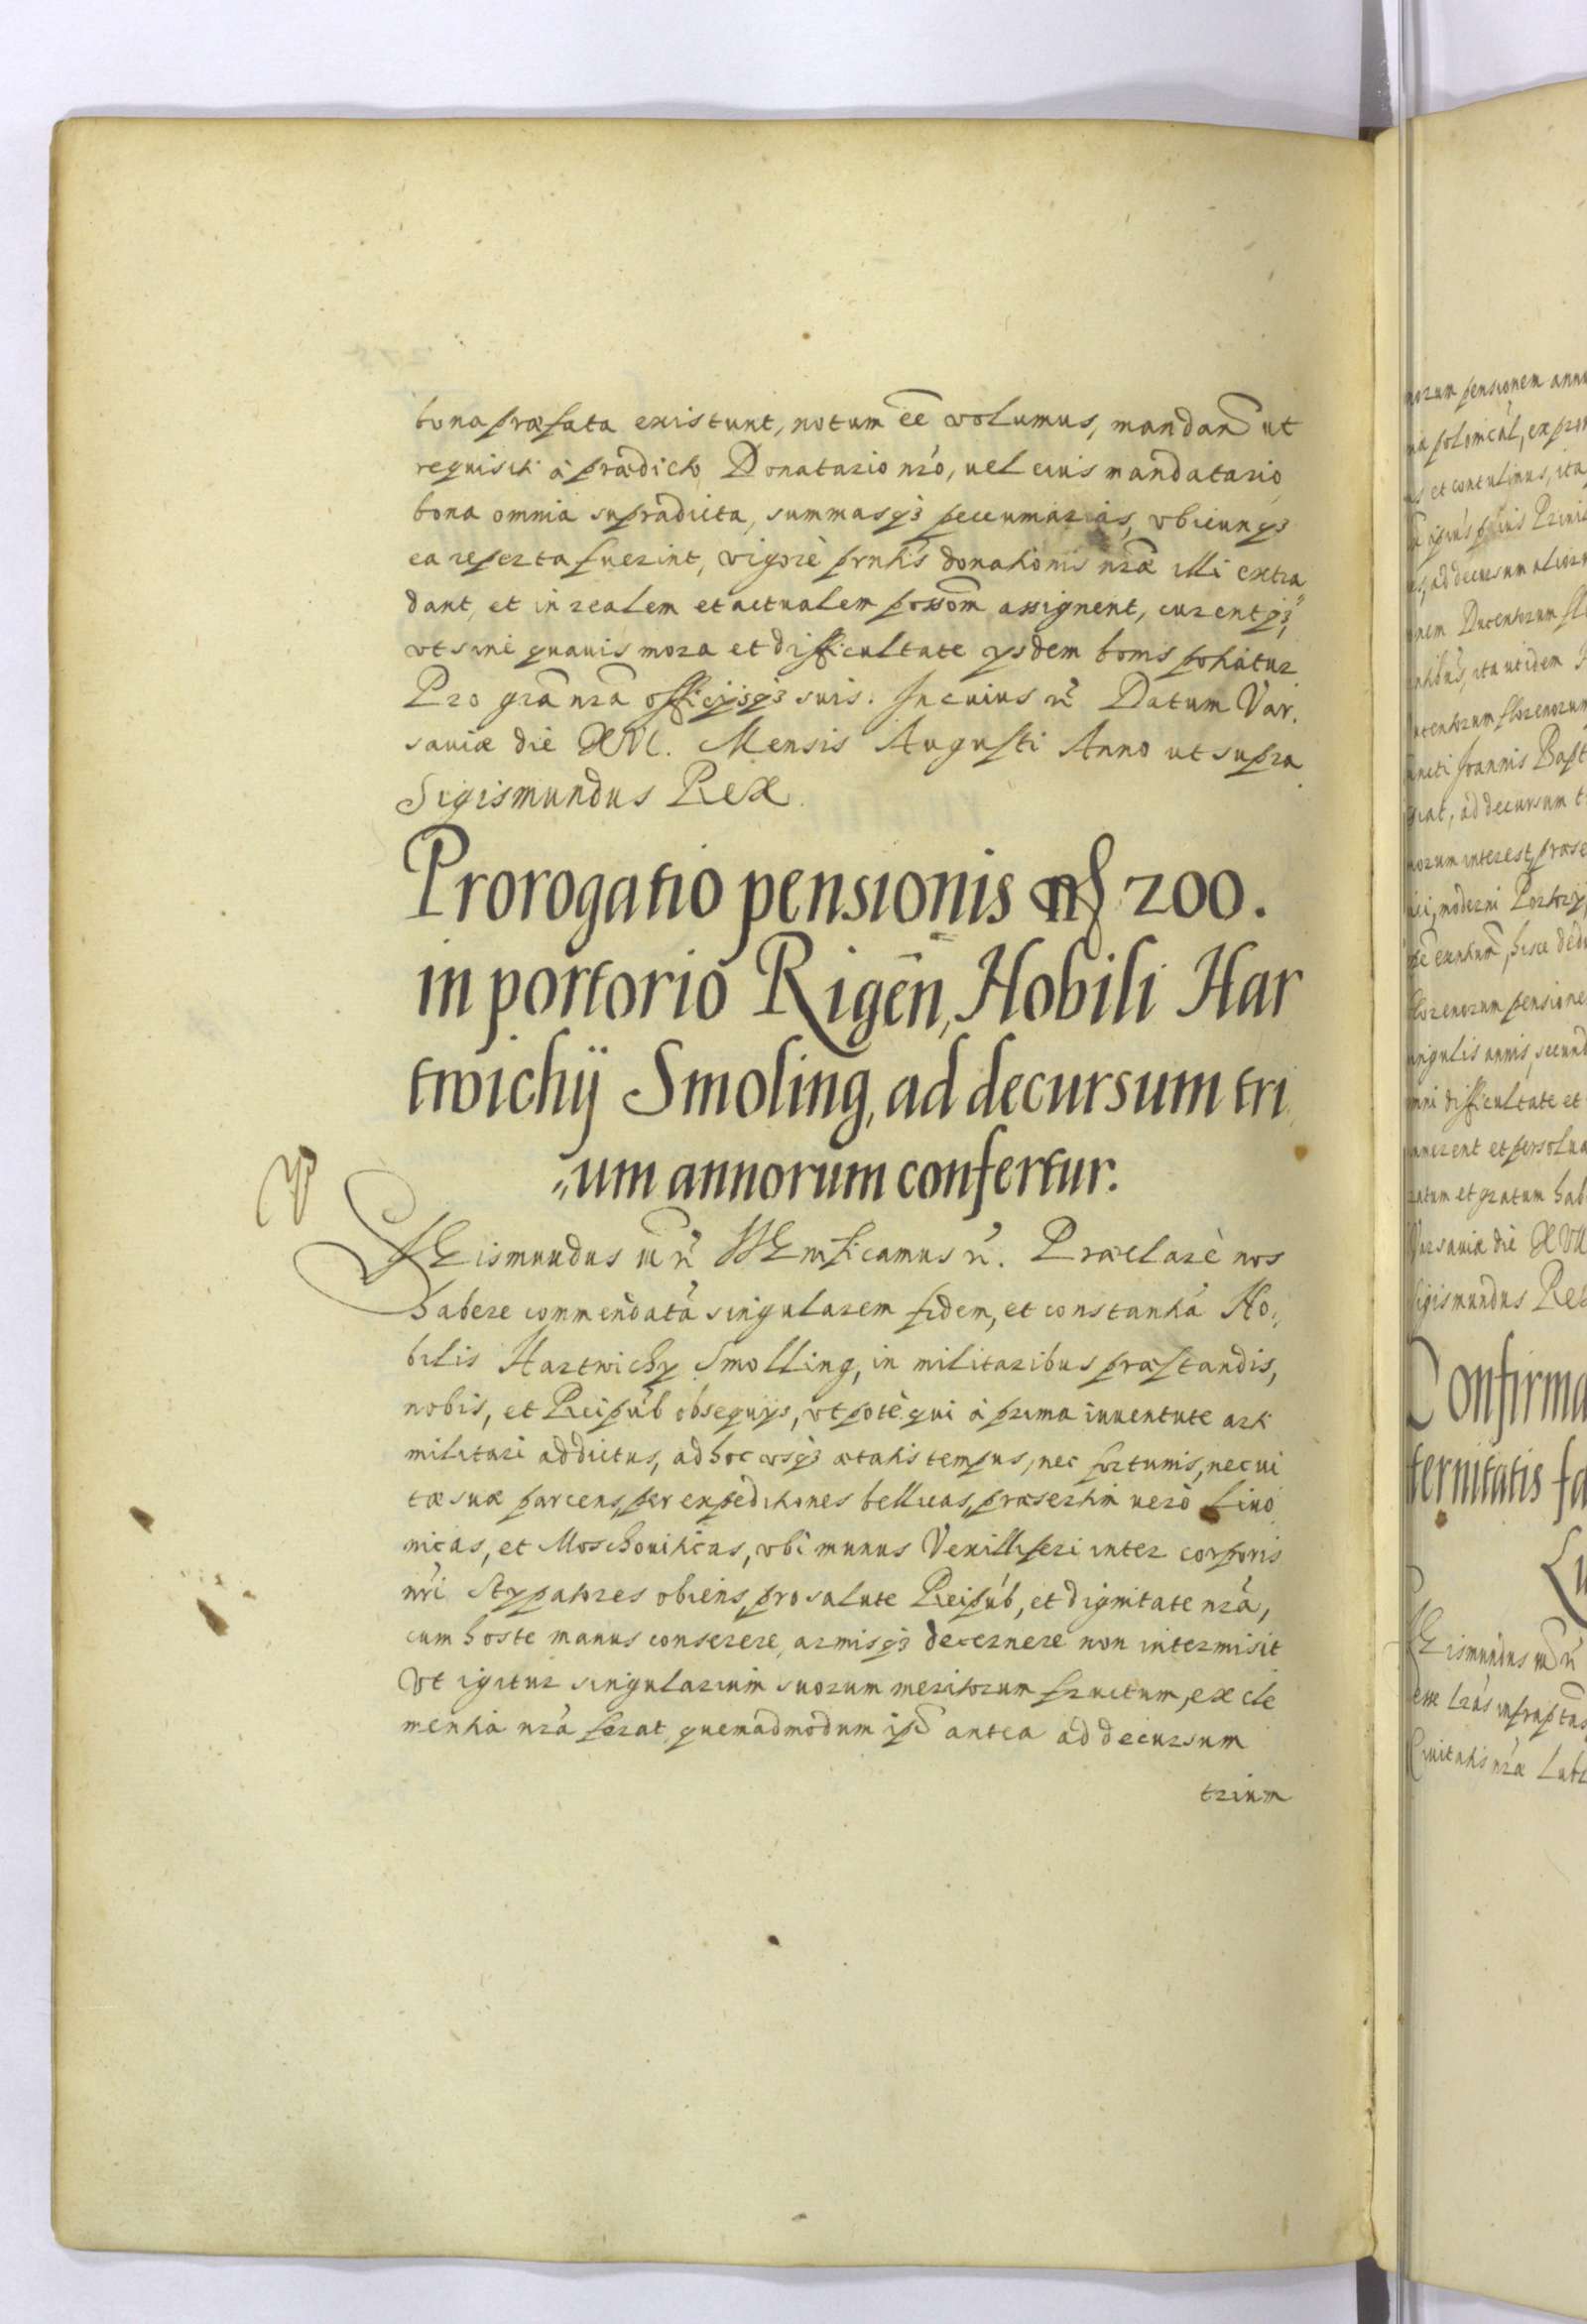 bona præfata existunt, notum ēē volumus, mandañ ut
requisiti à prædicto Donatario nrō, uel euis mandatario
bona omnia supradicta, summasqȝ pecuniarias, vbicunqȝ
ea reperta fuerint, vigore prntis donationis nræ illi extra
dant, et in realem et actualem possōm assignent, curentqȝ,
vt sine quauis mora et difficultate ysdem bonis potiatur
Pro gra nra officijsqȝ suis. In cuius rē Datum Var.
sauiæ die XVI. Mensis Augusti Anno ut supra
Sigismundus Rex.
Prorogatio pensionis nf 200.
in portorio Rigēn, Nobili Har
twichij Smoling, ad decursum tri
„um annorum confertur.
SIgismundus IIIus rē SIgnificamus rē. Præclare nos
habere commendatā singularem fidem, et constantiā No:
bilis Hartwichy Smolling, in militaribus præstandis,
nobis, et Reipúb obsequijs, vt pote qui à prima iuuentute arti
militari addictus, ad hoc vsqȝ ætatis tempus, nec fortunis, nec ui
tæ suæ parcens, per expeditiones bellicas, præsertim uero Liuo
nicas, et Moschouiticas, vbi munus Vexilliferi inter corporis
nri Stypatores obiens, pro salute Reipúb, et dignitate nrā,
cum hoste manus conserere, armisqȝ decernere non intermisit
Vt igitur singularium suorum meritorum fructum, ex cle
mentia nrā ferat, quemadmodum ipi antea ad decursum
trium
norum pensionem
et contulimus, ita
ad decursum
nem Ducentorum
ita ut idem
florenorum
Joannis Bapt
ad decursum
norum interest, præse
moderni
pensione
ngulis annis, secund
difficultate et
et persolua
ratum et gratum hab
Varsauiæ die XVII
Sigismundus Rex
Confirma
ternitatis fa
Lu
SIgismundus
Ciuitatis nræ Lubl